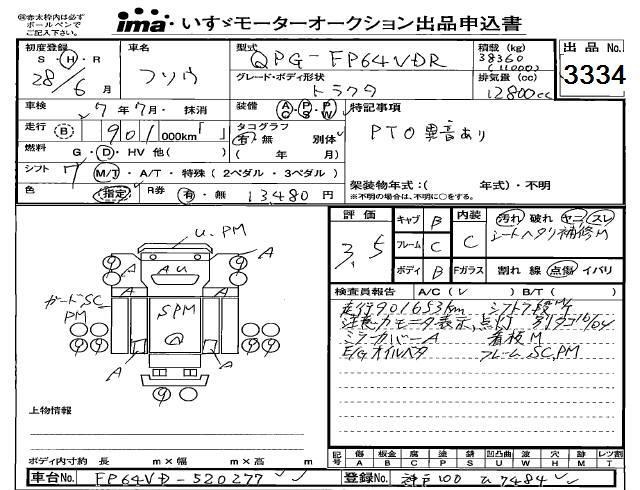 ㊟赤太枠内は必ず
ボールペンで
ご記入下さい。
ima いすゞモーターオークション出品申込書
初度登録 車名 型式 積載 (kg) 出品 No.
S・H・R フソウ QPG-FP64VDR 38360
28/6 月 グレード・ボディ形状 (11000)
トラクタ 排気量 (cc) 3334
12800cc
車検 7年7月・抹消 装備 AC PS PW 特記事項
走行 (B) 901,000km「 」 タコグラフ 別体 PTO異音あり
有・無
燃料 G・D・HV 他( ) ( 年 月)
シフト 7 M/T・A/T・特殊(2ペダル・3ペダル)
色 (指定) R券 有・無 13480円 架装物年式:( 年式)・不明
※不明の場合は、不明に○をする。
評価 キャブ B 内装 汚れ 破れ ヤニ スレ
3.5 フレーム C C シートヘタリ補修M
ボディ B Fガラス 割れ 線 点傷 イバリ
U.PM
9 A A 9
AU
A A
ガードSC
PM
SPM
9 9
A A
9
検査員報告 A/C(レ )B/T( )
走行901653km シフト7段MT
注意カモニタ表示,点灯 別タコ16/04
ミラーカバーA 看板M
E/Gオイルベタ フレームSC,PM
上物情報
ボディ内寸約 長 m×幅 m×高 m
記号 傷 板金 腐 塗 錆 凹凸曲 波 穴 跡 レツ割
A B C P S U W H M T
車台No. FP64VD-520277 登録No. 神戸100 ひ7484